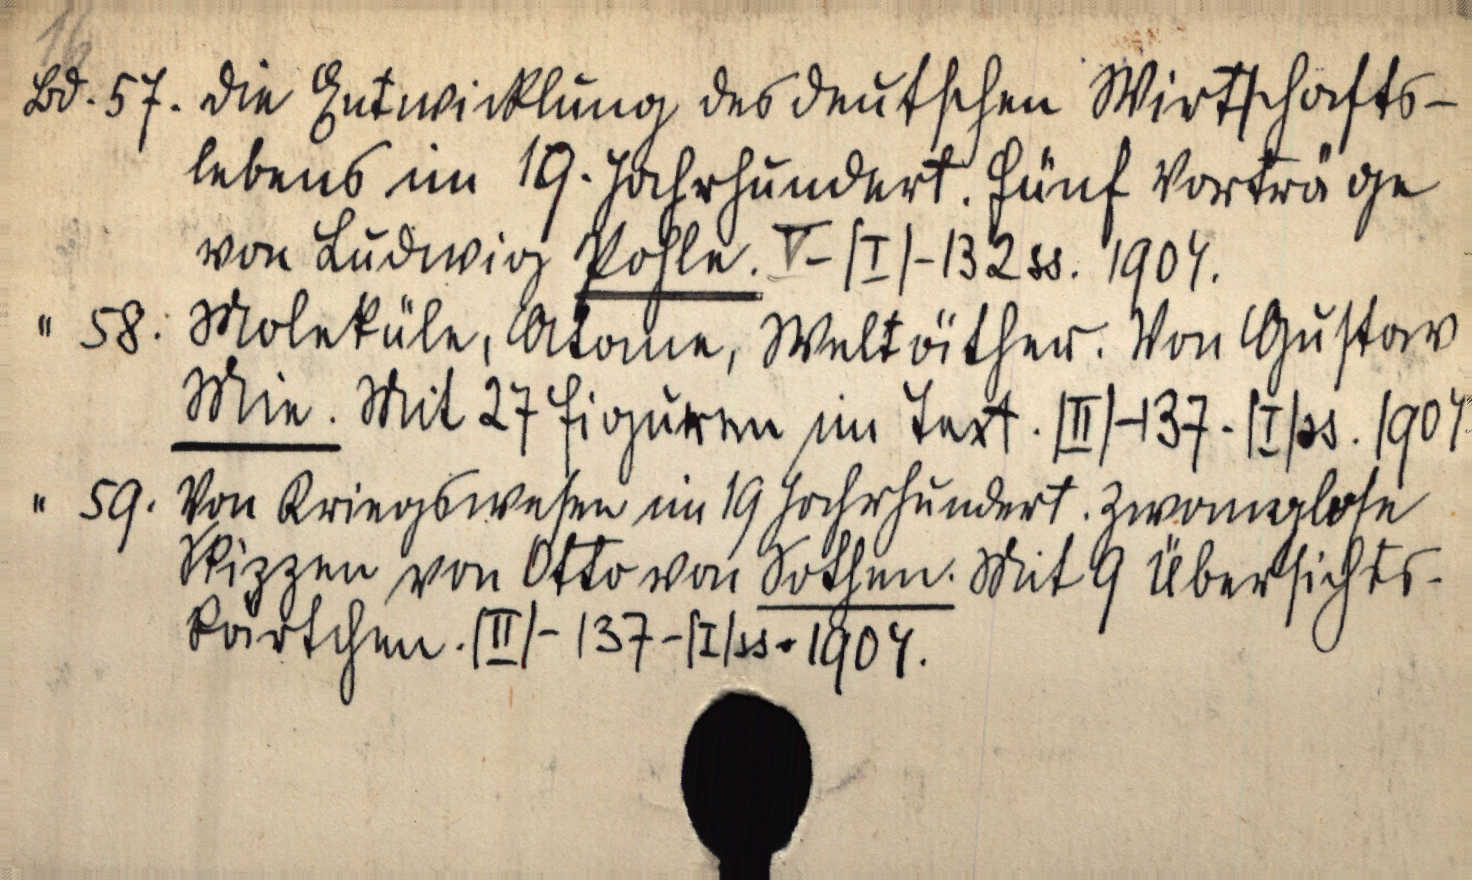 16
Bd. 57. Die Entwicklung des deutschen Wirtschafts-
lebens im 19. Jahrhundert. Fünf Vorträge
von Ludwig Pohle. V-|I|-132 ss. 1904.
" 58. Moleküle, Atome, Weltäther. Von Gustav
Mie. Mit 27 Figuren im Text. |II|-137-|I|ss. 1904
" 59. Von Kriegswesen im 19 Jahrhundert. Zwanglose
Skizzen von Otto von Sothen. Mit 9 Übersichts-
kärtchen. |II|-137-|I|ss. 1904.